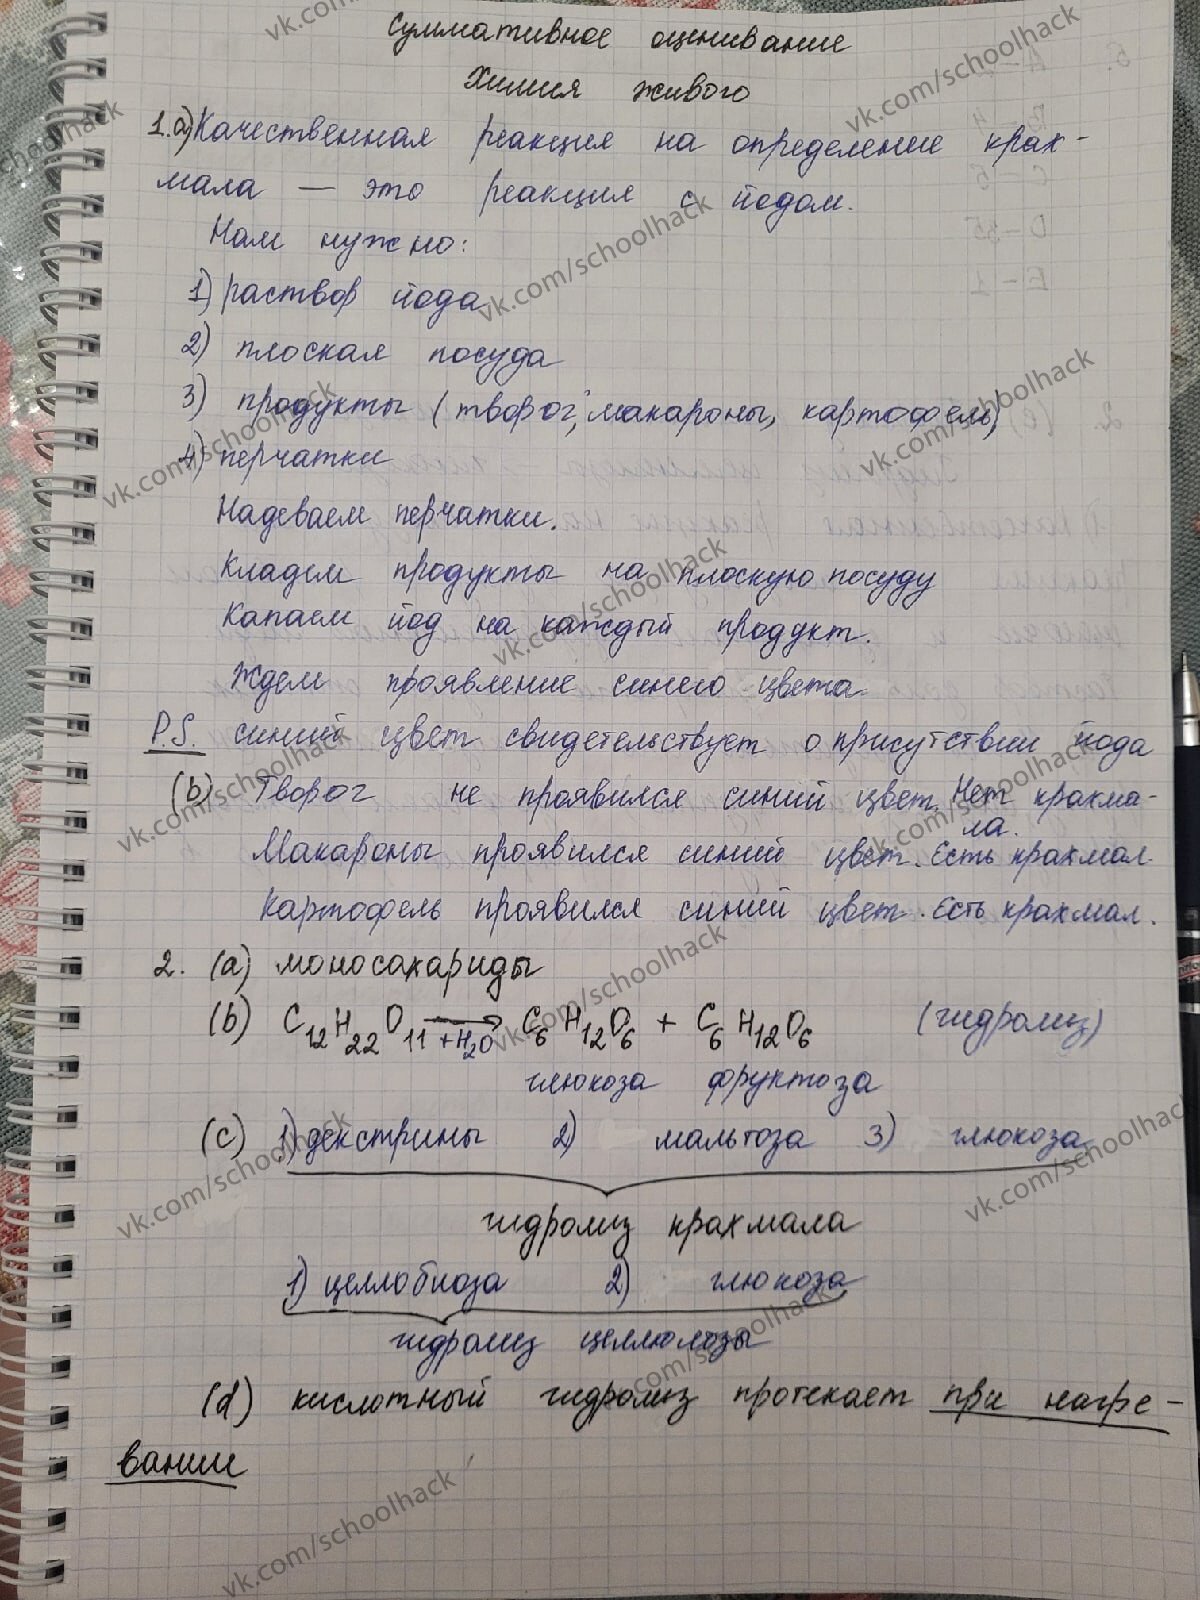 Суммативное оценивание
Химия живого
1.a) Качественная реакция на определение крах-
мала — это реакция с йодом.
Нам нужно:
1) раствор йода
2) плоская посуда
3) продукты (творог, макароны, картофель)
4) перчатки
Надеваем перчатки.
Кладем продукты на плоскую посуду
Капаем йод на каждый продукт.
Ждем проявление синего цвета.
P.S. синий цвет свидетельствует о присутствии йода
(b) Творог не проявился синий цвет. Нет крахма-
ла.
Макароны проявился синий цвет. Есть крахмал.
Картофель проявился синий цвет. Есть крахмал.
2. (a) моносахариды
(b) C12H22O11 →+H2O C6H12O6 + C6H12O6 (гидролиз)
глюкоза фруктоза
(c) 1) декстрины 2) мальтоза 3) глюкоза
гидролиз крахмала
1) целлобиоза 2) глюкоза
гидролиз целлюлозы
(d) кислотный гидролиз протекает при нагре-
вании
vk.com/schoolhack